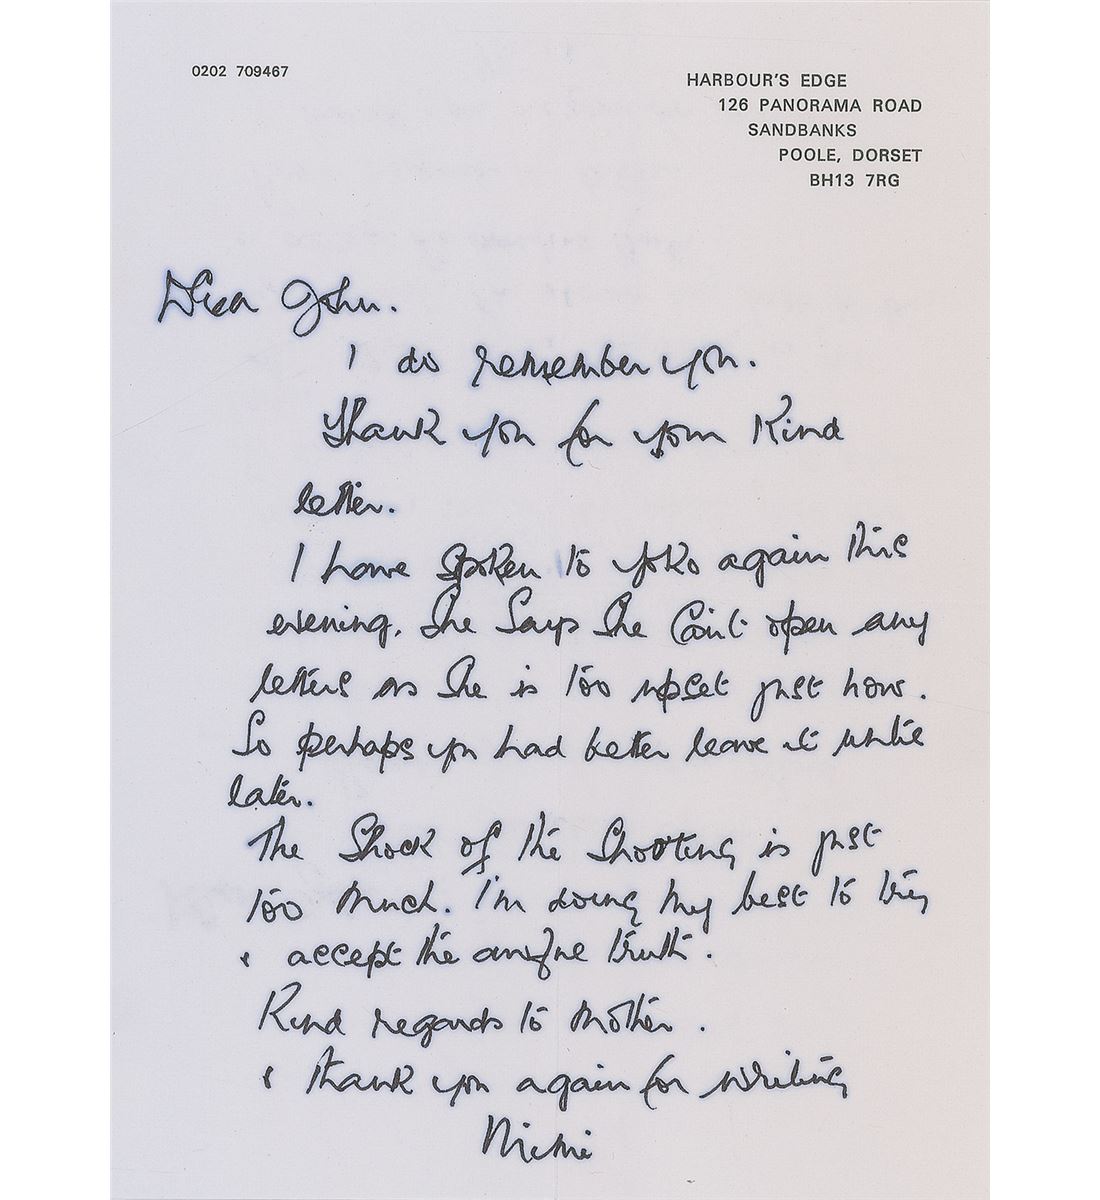 0202 709467
HARBOUR'S EDGE
126 PANORAMA ROAD
SANDBANKS
POOLE, DORSET
BH13 7RG
Dear John.
I do remember you.
Thank you for your Kind
letter.
I have Spoken to Yoko again this
evening. She Says She Can't open any
letters as She is too upset just now.
So perhaps you had better leave it until
later.
The Shock of the Shooting is just
too much. I'm doing my best to try
& accept the awful truth.
Kind regards to Mother.
& thank you again for writing
Mimi